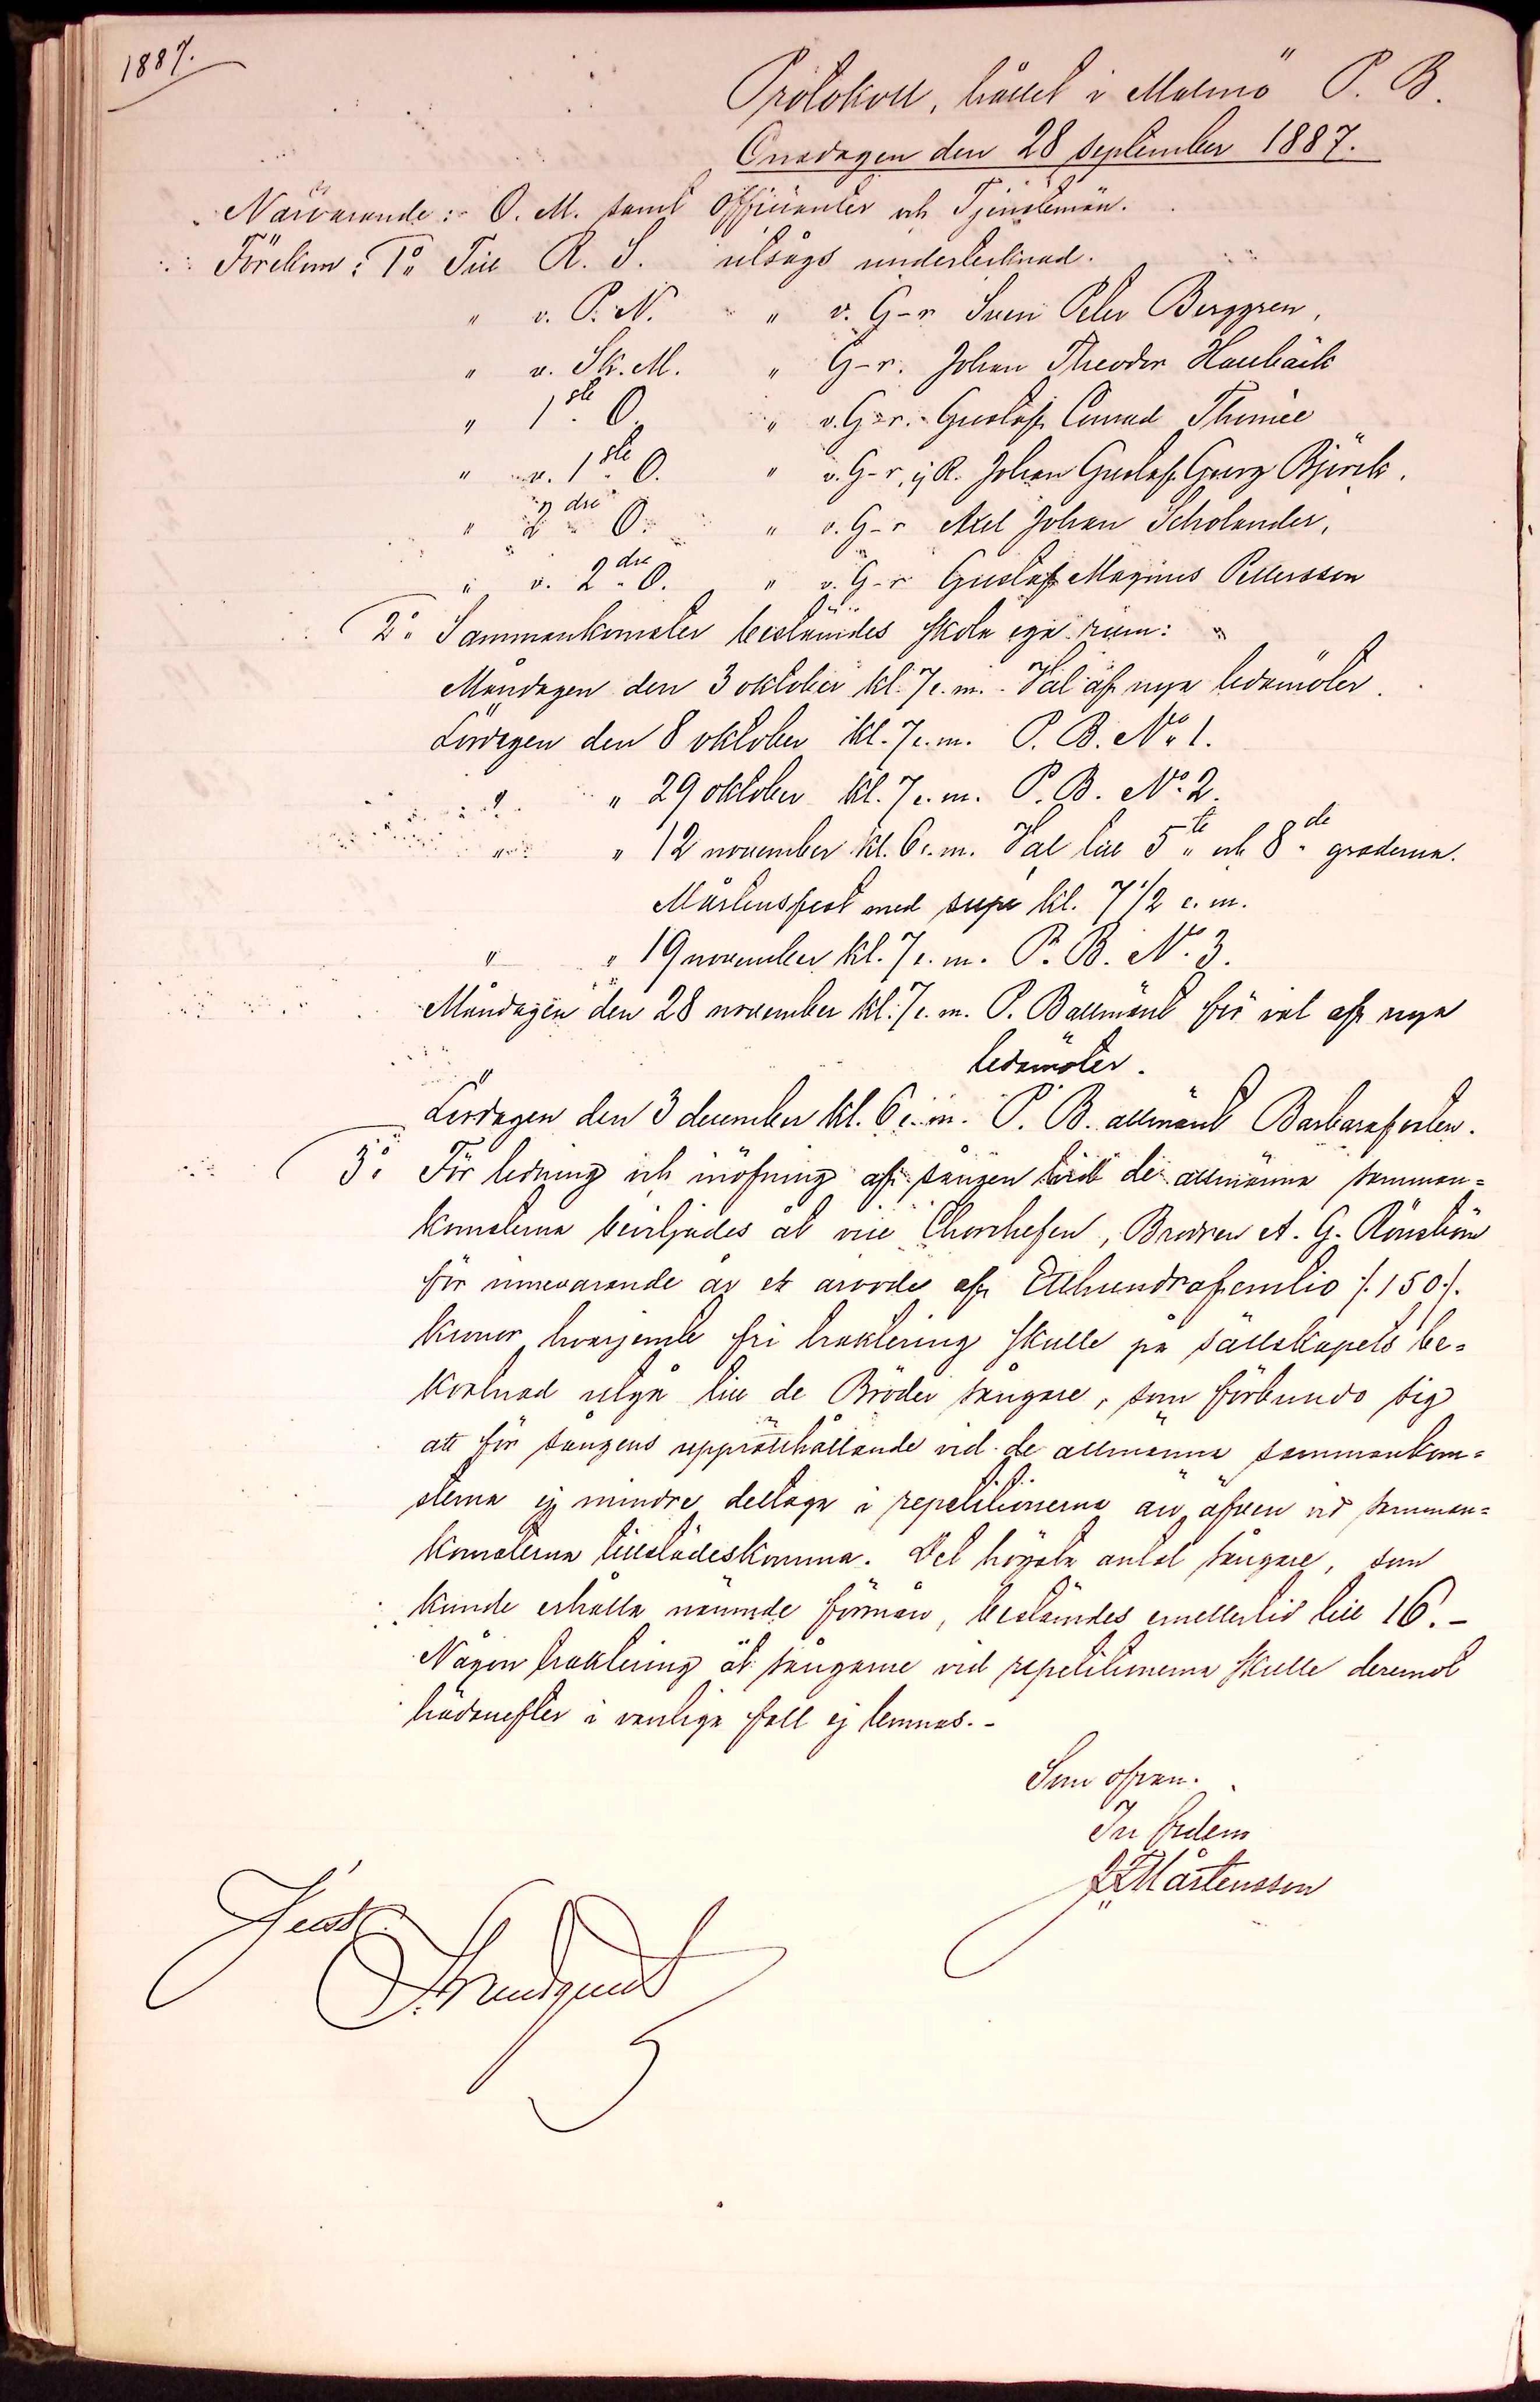 1887.
Protokoll, hållet i Malmö P. B.
Onsdagen den 28 september 1887.
Närvarande: O. M. samt Officianter och Tjenstemän.
Förekom: 1o Till R. S. utsågs undertecknad.
" v. P. N. " v. G-r Sven Peter Berggren,
" v. Sk. M. " G-r. Johan Theodor Hallbäck
" 1ste O. " v. G-r. Gustaf Conrad Thimée
" v. 1ste O. " v. G-r, ij R. Johan Gustaf Georg Björck.
" 2dre O. " v. G-r Axel Johan Scholander,
" v. 2dre O. " v. G-r Gustaf Magnus Pettersson
2o Sammankomster bestämdes skola ega rum:
Måndagen den 3 oktober kl. 7 e.m. Val af nya ledamöter.
Lördagen den 8 oktober kl. 7 e.m. P. B. No 1.
" " 29 oktober kl. 7 e.m. P. B. No 2.
" " 12 november kl. 6 e.m. Val till 5te och 8de graderna.
Mårtensfest med supé kl. 7 1/2 e. m.
" " 19 november kl. 7 e. m. P. B. No 3.
Måndagen den 28 november kl. 7 e. m. P. B allmänt för val af nya
ledamöter.
Lördagen den 3 december kl. 6 e. m. P. B. allmänt Barbarafesten.
3o För ledning och inöfning af sången vid de allmänna samman=
komsterna beviljades åt vice Chorchefen, Brodren A. G. Rönström
för innevarande år ett arvode af Etthundrafemtio /.150./.
kronor, hvarjemte fri traktering skulle på sällskapets be=
kostnad utgå till de Bröder sångare, som förbundo sig
att för sångens upprätthållande vid de allmänna sammankom=
sterna ej mindre deltaga i repetitionerna än äfven vid samman=
komsterna tillstädeskomma. Det högsta antal sångare, som
kunde erhålla nämnde förmån, bestämdes emellertid till 16.-
Någon traktering åt sångarne vid repetitionerna skulle deremot
hädanefter i vanliga fall ej lemnas.-
Som ofvan.
In fidem
Mårtensson
Just.